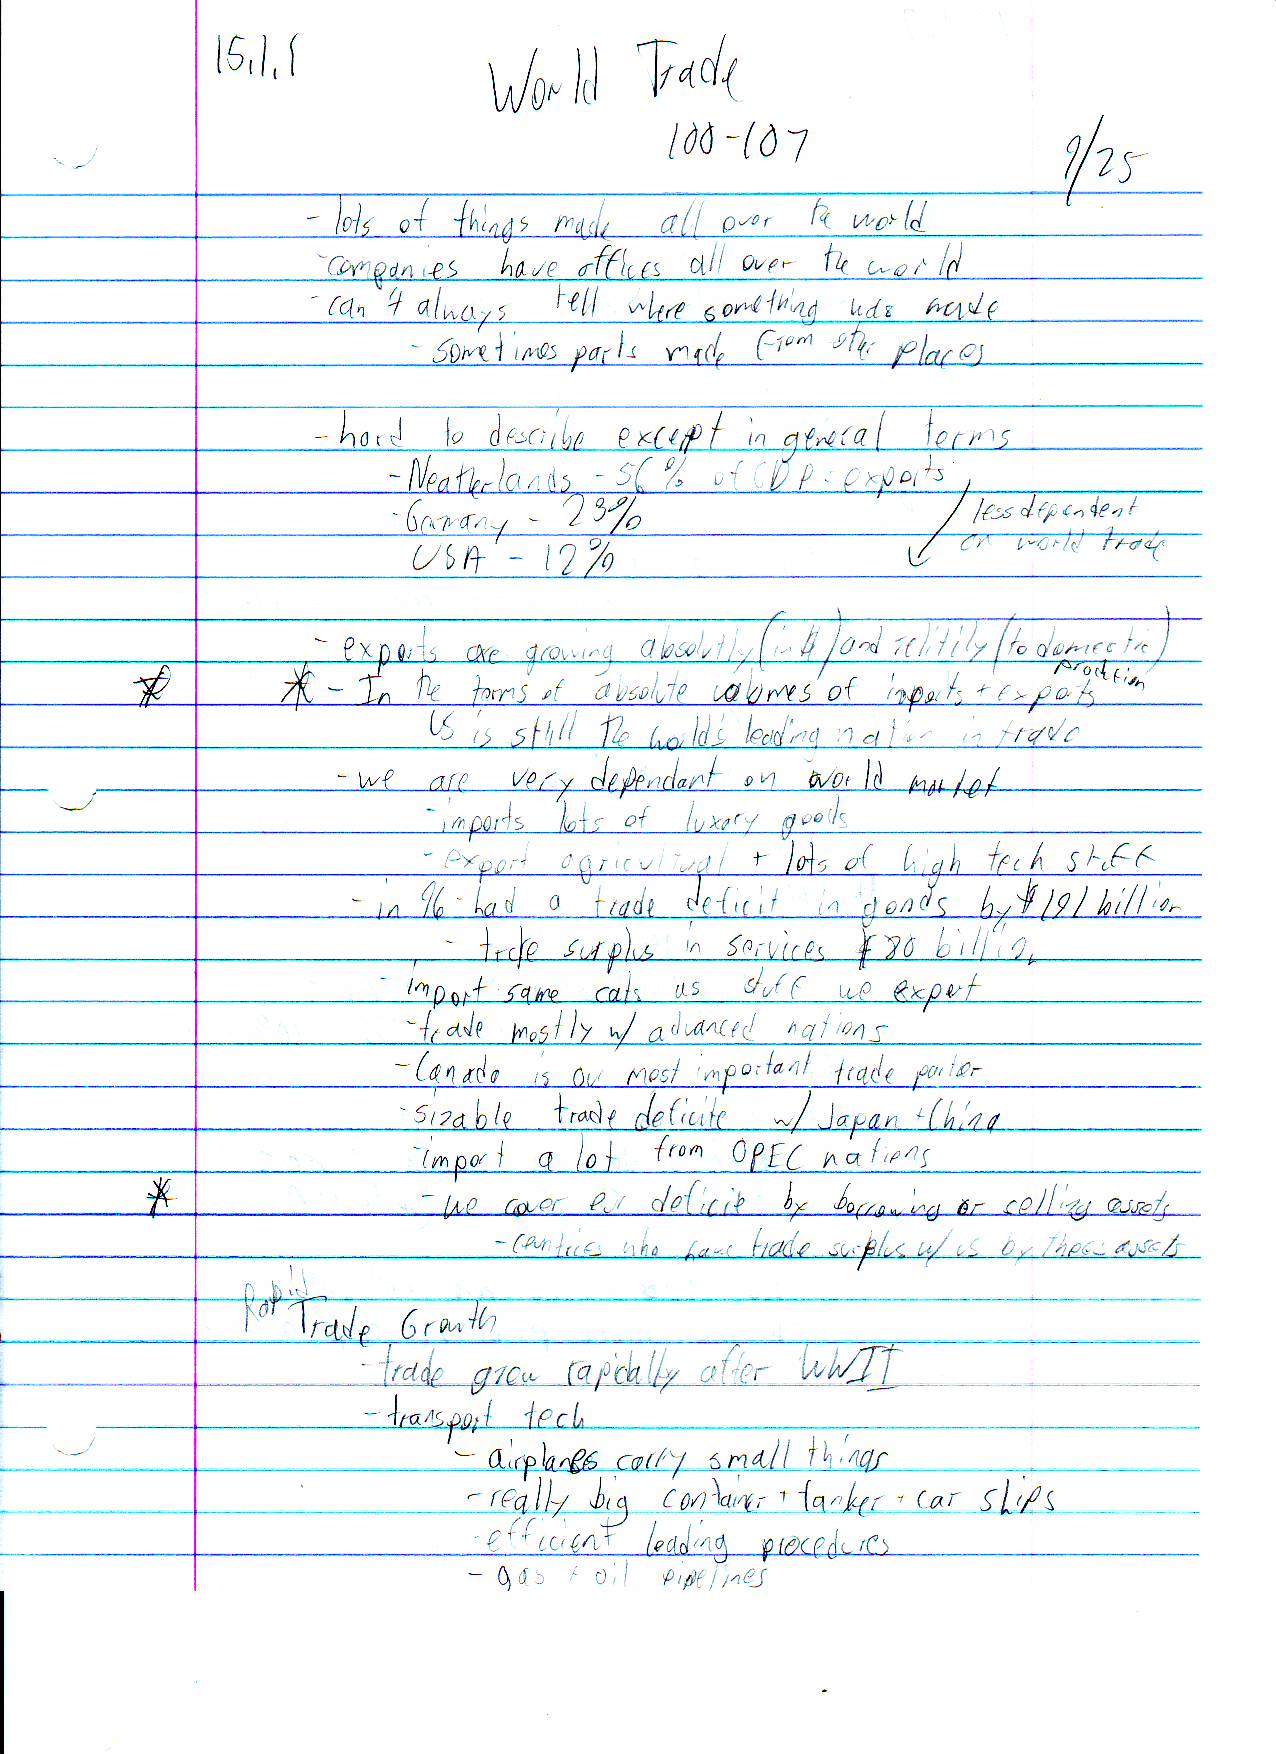 15.1.1
World Trade
100-107
9/25
- lots of things made all over the world
- companies have offices all over the world
- can't always tell where something was made
- sometimes parts made from other places
- hard to describe except in general terms
- Neatherlands - 56% of GDP = exports
- Gamany - 23%
USA - 12%
less dependent
on world trade
- exports are growing absolutly (in $) and relitily (to domestic
production)
* * - In the terms of absolute volumes of imports + exports
US is still the world's leading nation in trade
- we are very dependant on world market
- imports lots of luxury goods
- export agricultural + lots of high tech stuff
- in 96 had a trade deficit in goods by $191 billion
- trade surplus in services $80 billion
- import same cats as stuff we export
- trade mostly w/ advanced nations
- Canada is our most important trade parter
- sizable trade deficite w/ Japan + China
- import a lot from OPEC nations
* - we cover our deficit by borrowing or selling assets
- countries who have trade surplus w/ us by these assets
Rapid
Trade Growth
- trade grew rapidally after WWII
- transport tech
- airplanes carry small things
- really big container + tanker + car ships
- efficient loading procedures
- gas + oil pipelines